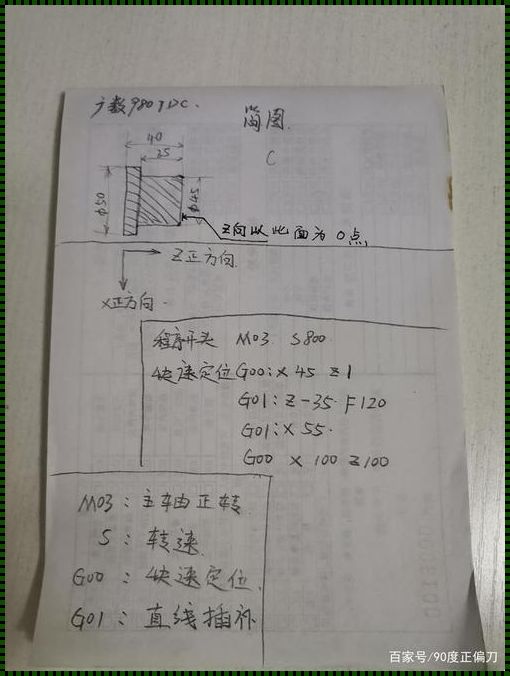 广数980TDC.
简图.
C
40
25
φ50
φ45
Z向以此面为0点
Z正方向
X正方向.
程序开头 M03 S800
快速定位G00:X45 Z1
G01:Z-35 F120
G01:X55.
G00 X100 Z100
M03:主轴正转
S:转速
G00:快速定位
G01:直线插补
百家号/90度正偏刀